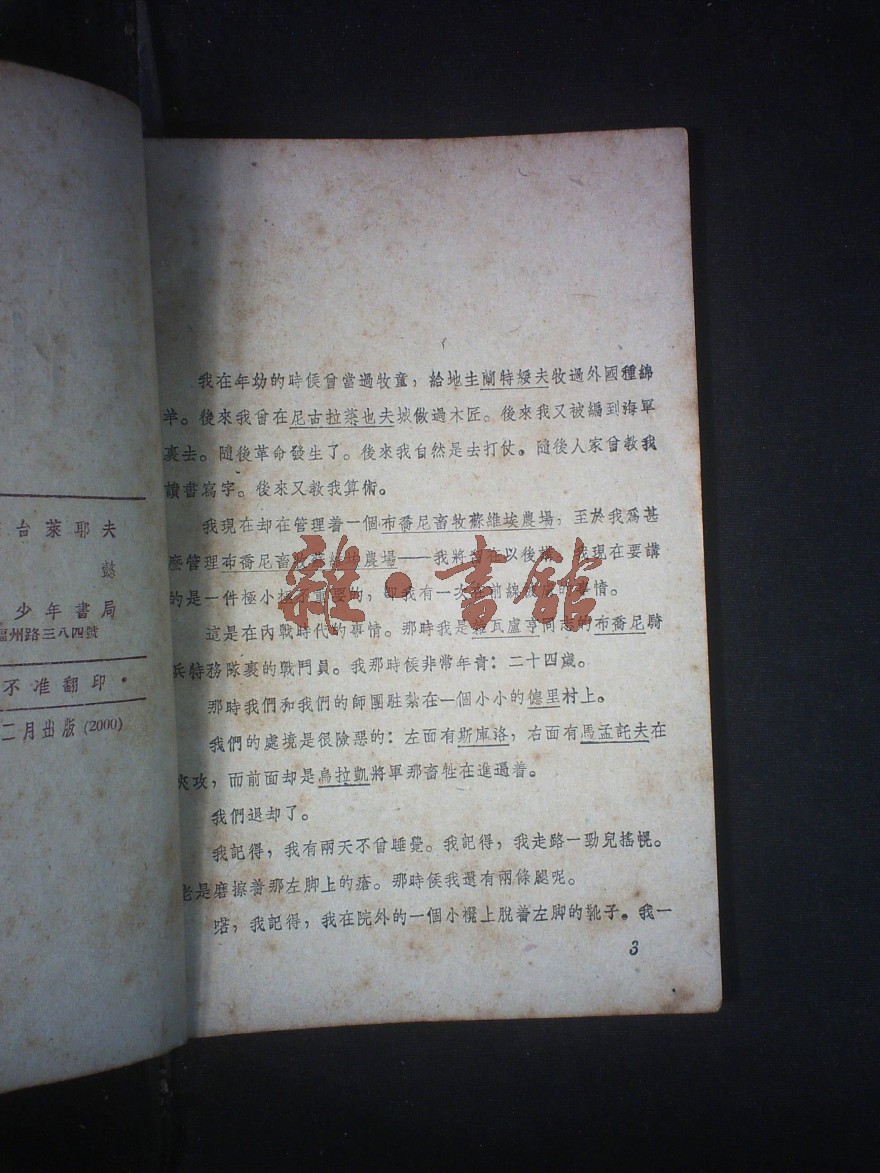 台萊耶夫
懿
少年書局
福州路三八四號
不准翻印·
二月出版(2000)
我在年幼的時候曾當過牧童，給地主蘭特綏夫牧過外國種綿
羊。後來我曾在尼古拉萊也夫城做過木匠。後來我又被編到海軍
裏去。隨後革命發生了。後來我自然是去打仗。隨後人家曾教我
讀書寫字。後來又教我算術。
我現在却在管理着一個布喬尼畜牧蘇維埃農場，至於我爲甚
麽管理布喬尼畜牧蘇維埃農場——我將留在以後講。我現在要講
的是一件極小極不重要的，卽我有一次在前線的事情。
這是在內戰時代的事情。那時我是瓦盧亨同志的布喬尼騎
兵特務隊裏的戰鬥員。我那時候非常年青：二十四歲。
那時我們和我們的師團駐紮在一個小小的德里村上。
我們的處境是很險惡的：左面有斯庫洛，右面有馬孟託夫在
夾攻，而前面却是烏拉凱將軍那畜牲在進逼着。
我們退却了。
我記得，我有兩天不曾睡覺。我記得，我走路一勁兒搖幌。
老是磨擦着那左脚上的瘡。那時候我還有兩條腿呢。
喏，我記得，我在院外的一個小櫈上脫着左脚的靴子。我一
3
雜·書館